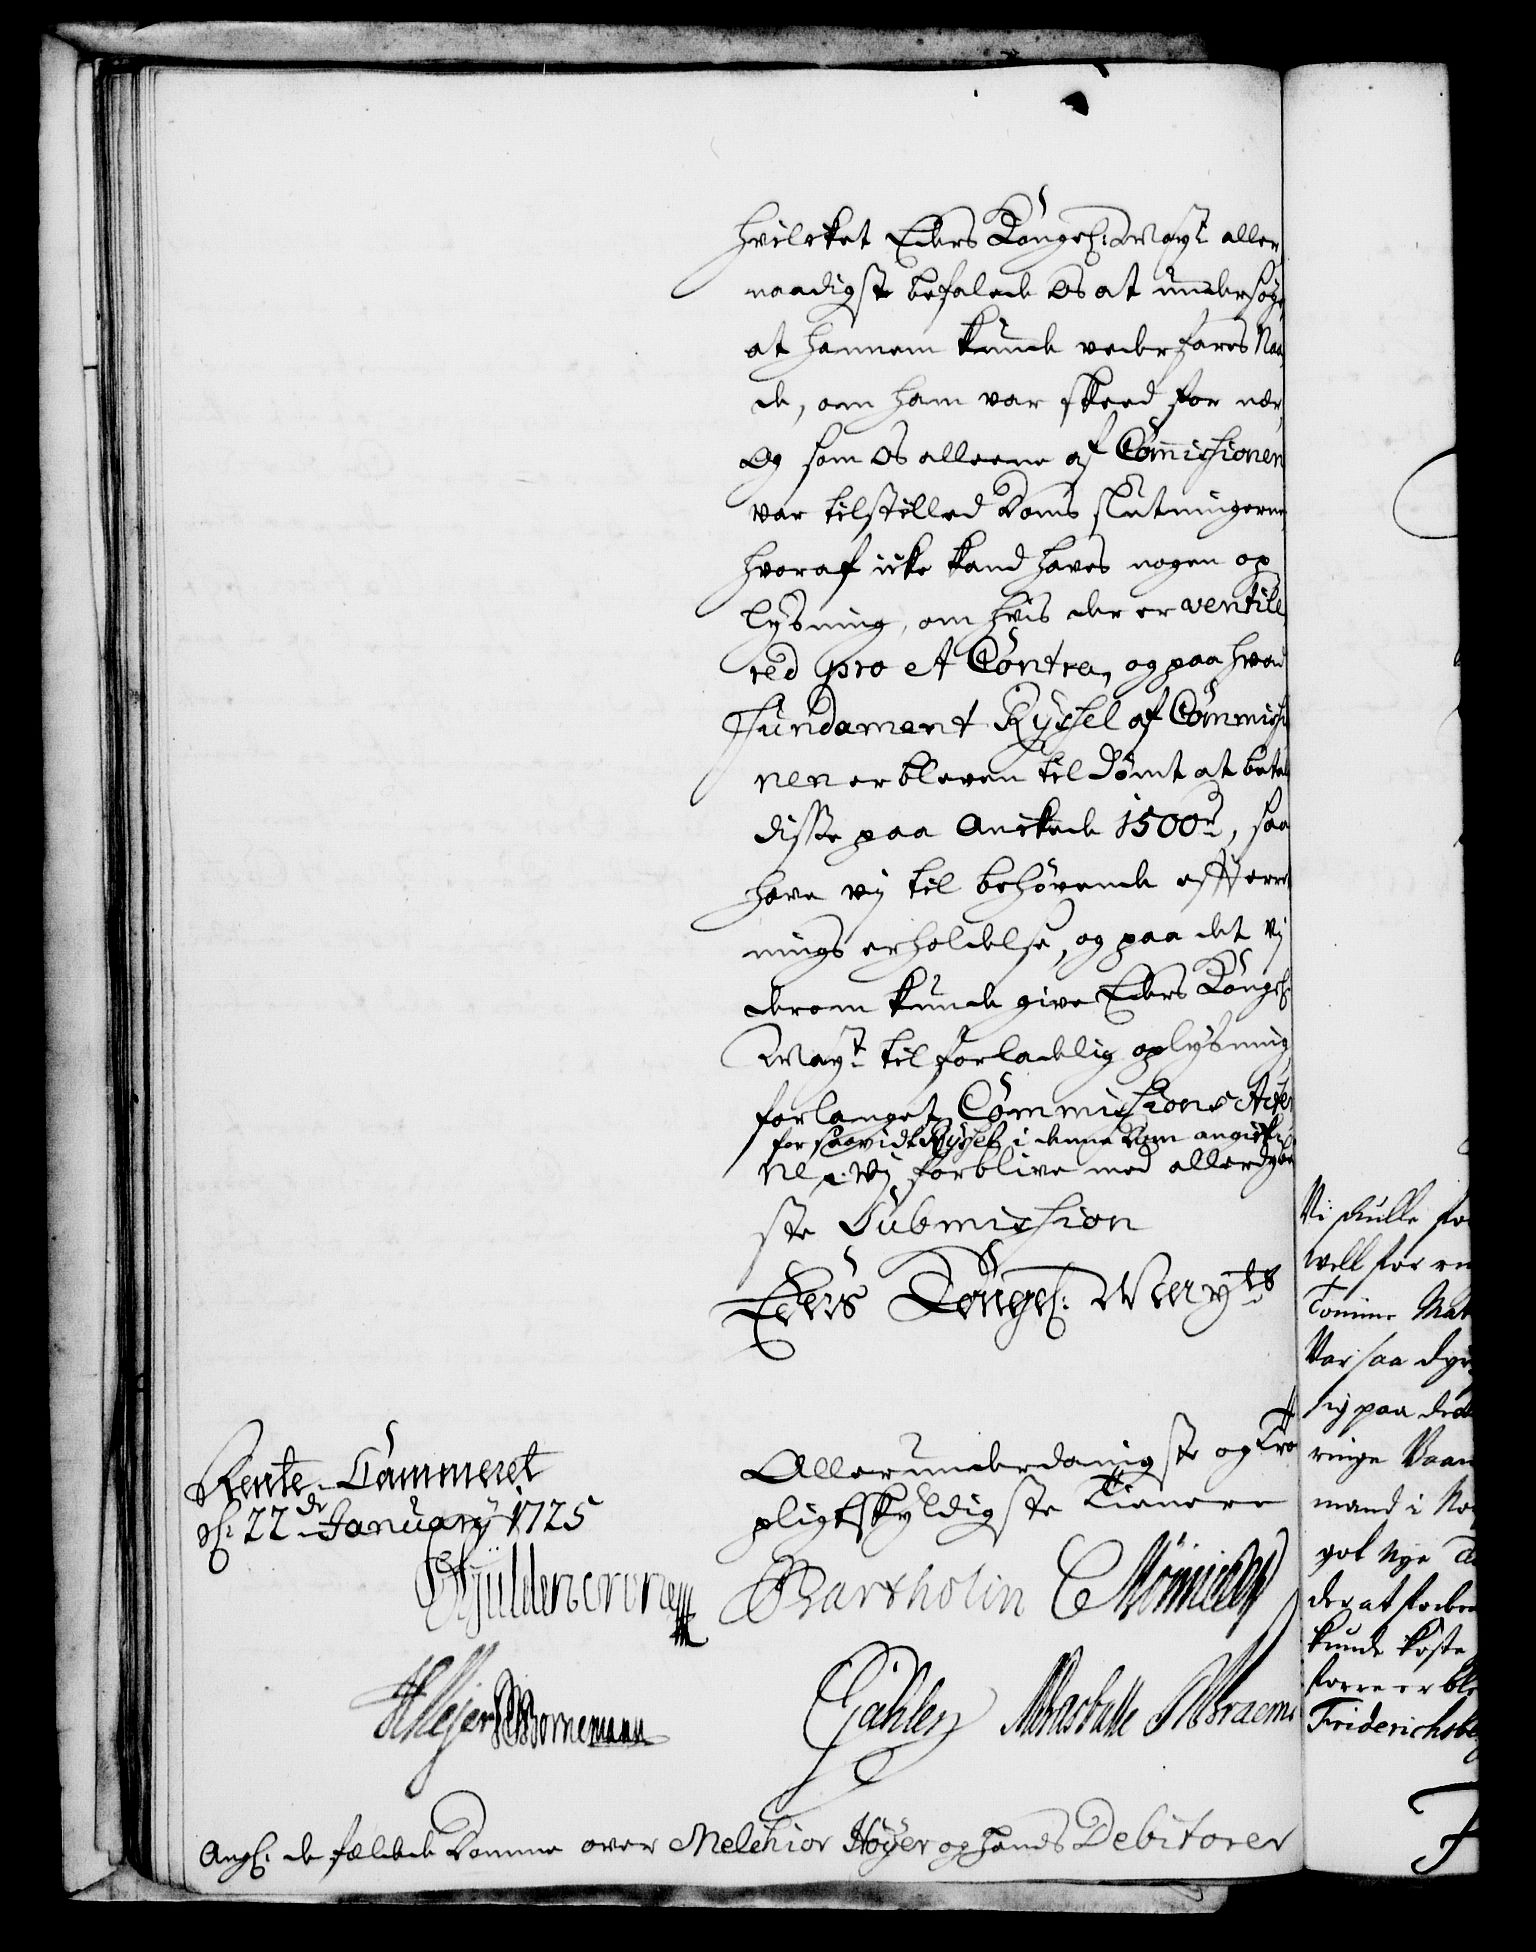 hvilcket Eders Kongel: May:t aller
naadigste befalede os at undersøge
at hannem kunde vederfares Naa
de, om ham var skeed for nær,
Og som os alleene af Commissionen
var tilstilled Doms slutningerne
hvoraf icke kand haves nogen op
lysning, om hvis der er ventile
red pro et Contra, og paa hvad
Fundament Ryssel af Commissio
nen er bleven til dømt at betale
disse paa anckede 1500 rd, saa
have vij til behøvende efferret
nings erholdelse, og paa det vj
derom kunde give Eders Kongel:
May:t tilforladelig oplysning
forlanget Commissions Acter
for saavidt Ryssel i denne Dom angick
ne, Vij forblive med allerdybe
ste Submission
Eders Kongel: May:ts
Allerunderdanigste og Tro
pligtskyldigste Tienere
Rente-Cammeret
d: 22 de January 1725
Güldencrone Bartholin
HMeyer Bornemann
Angl: de fældede Domme over Melchior Høyer og hands Debitorer
Vi skulle for
well for
Tomme Mat
Var saa dyr
sig paa
ringe Vaan
mand i No
got Nye
der at
kunde koste
forre er ble
Friderichsbe
F